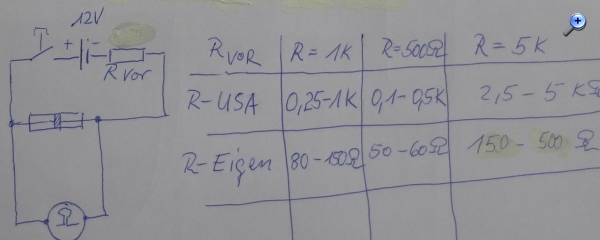 12V
T
+ -
R vor
Ω
R VOR R = 1K R = 500Ω R = 5K
R-USA 0,25-1K 0,1-0,5K 2,5 - 5 KΩ
R-Eigen 80-150Ω 50-60Ω 150 - 500 Ω